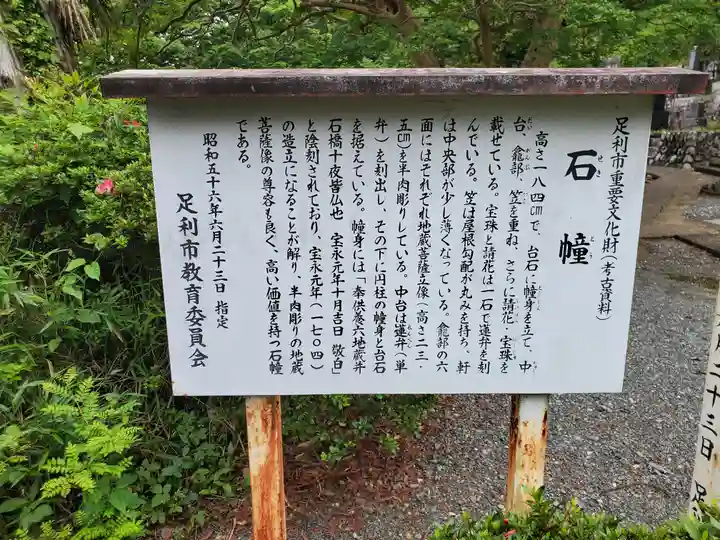 足利市重要文化財(考古資料)
石幢
せきとう
高さ一八四㎝で、台石に幢身を立て、中
台、龕部、笠を重ね、さらに請花、宝珠を
載せている。宝珠と請花は一石で蓮弁を刻
んでいる。笠は屋根勾配が丸みを持ち、軒
は中央部が少し薄くなっている。龕部の六
面にはそれぞれ地蔵菩薩立像(高さ二三・
五㎝)を半肉彫りしている。中台は蓮弁(単
弁)を刻出し、その下に円柱の幢身と台石
を据えている。幢身には「奉供養六地蔵并
石橋十夜皆仏也 宝永元年十月吉日 敬白」
と陰刻されており、宝永元年(一七〇四)
の造立になることが解り、半肉彫りの地蔵
菩薩像の尊容も良く、高い価値を持つ石幢
である。
昭和五十六年六月二十三日 指定
足利市教育委員会
二十三日 足